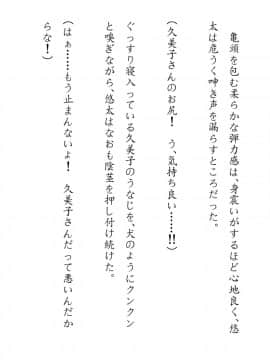 亀頭を包む柔らかな弾力感は、身震いがするほど心地良く、悠
太は危うく呻き声を漏らすところだった。
（久美子さんのお尻！　う、気持ち良い……!!）
ぐっすり寝入っている久美子のうなじを、犬のようにクンクン
と嗅ぎながら、悠太はなおも陰茎を押し付け続けた。
（はぁ……もう止まんないよ！　久美子さんだって悪いんだか
らな！）